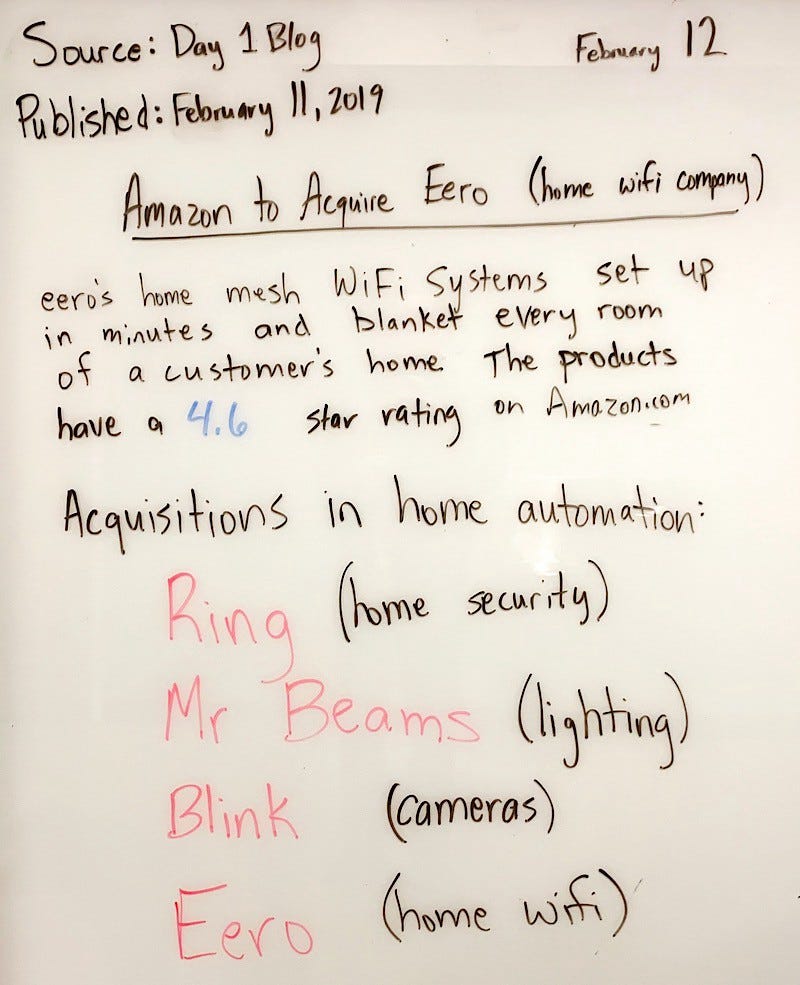 Source: Day 1 Blog
February 12
Published: February 11, 2019
Amazon to Acquire Eero (home wifi company)
eero's home mesh WiFi Systems set up
in minutes and blanket every room
of a customer's home. The products
have a 4.6 star rating on Amazon.com
Acquisitions in home automation:
Ring (home security)
Mr Beams (lighting)
Blink (cameras)
Eero (home wifi)